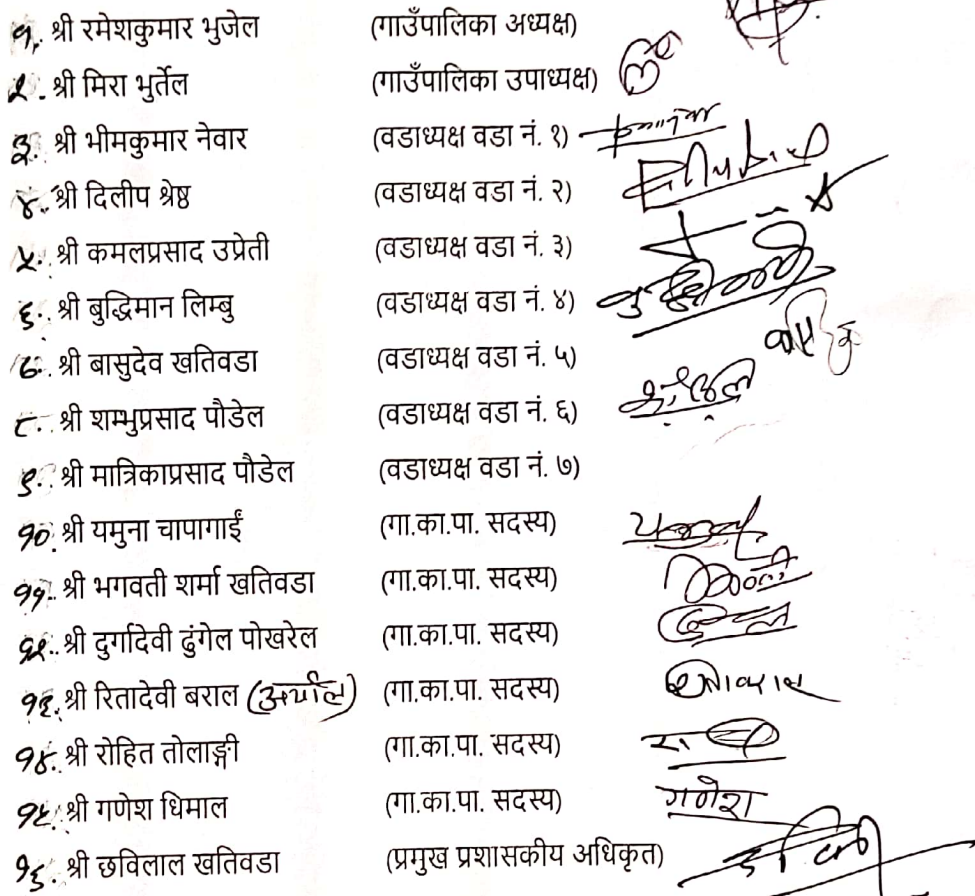 १. श्री रमेशकुमार भुजेल (गाउँपालिका अध्यक्ष)
२. श्री मिरा भुर्तेल (गाउँपालिका उपाध्यक्ष)
३. श्री भीमकुमार नेवार (वडाध्यक्ष वडा नं. १)
४. श्री दिलीप श्रेष्ठ (वडाध्यक्ष वडा नं. २)
५. श्री कमलप्रसाद उप्रेती (वडाध्यक्ष वडा नं. ३)
६. श्री बुद्धिमान लिम्बु (वडाध्यक्ष वडा नं. ४)
७. श्री बासुदेव खतिवडा (वडाध्यक्ष वडा नं. ५)
८. श्री शम्भुप्रसाद पौडेल (वडाध्यक्ष वडा नं. ६)
९. श्री मात्रिकाप्रसाद पौडेल (वडाध्यक्ष वडा नं. ७)
१०. श्री यमुना चापागाईं (गा.का.पा. सदस्य)
११. श्री भगवती शर्मा खतिवडा (गा.का.पा. सदस्य)
१२. श्री दुर्गादेवी ढुंगेल पोखरेल (गा.का.पा. सदस्य)
१३. श्री रितादेवी बराल (अर्याल) (गा.का.पा. सदस्य)
१४. श्री रोहित तोलाङ्गी (गा.का.पा. सदस्य)
१५. श्री गणेश धिमाल (गा.का.पा. सदस्य) गणेश
१६. श्री छविलाल खतिवडा (प्रमुख प्रशासकीय अधिकृत)